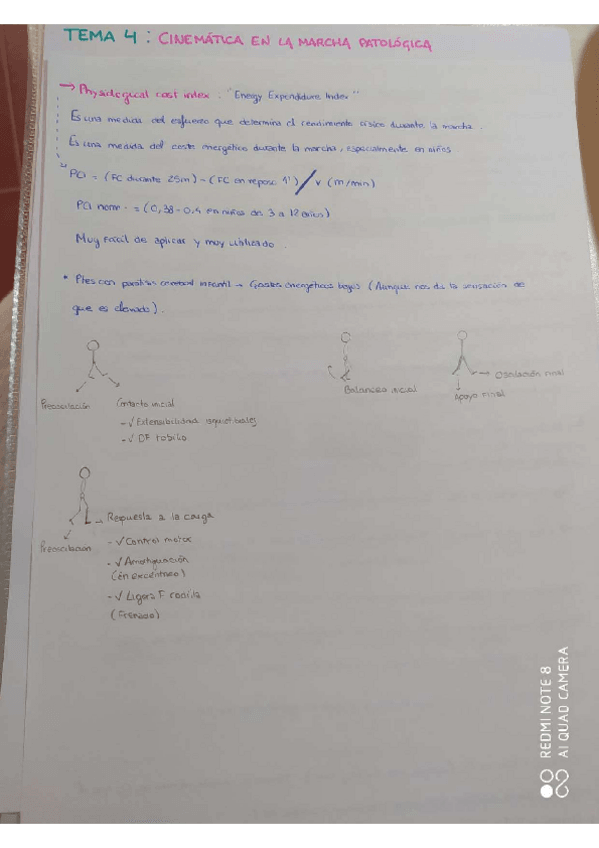 TEMA 4 : CINEMÁTICA EN LA MARCHA PATOLÓGICA
→ Physiological cost index . "Energy Expenditure Index"
Es una medida del esfuerzo que determina el rendimiento físico durante la marcha .
Es una medida del coste energético durante la marcha, especialmente en niños
PCI = (FC durante 25m) - (FC en reposo 4') / v (m/min)
PCI norm. = (0,38 - 0,4 en niños de 3 a 12 años)
Muy fácil de aplicar y muy utilizado .
* Ptes con parálisis cerebral infantil → Gastos energéticos bajos (Aunque nos da la sensación de
que es elevado).
Preoscilación
Contacto inicial
- √ Extensibilidad isquiotibiales
- √ DF tobillo
Balanceo inicial
Oscilación final
Apoyo final
Respuesta a la carga
Preoscilación
- √ Control motor
- √ Amortiguación
(en excéntrico)
- √ Ligera F rodilla
(Frenado)
REDMI NOTE 8
AI QUAD CAMERA